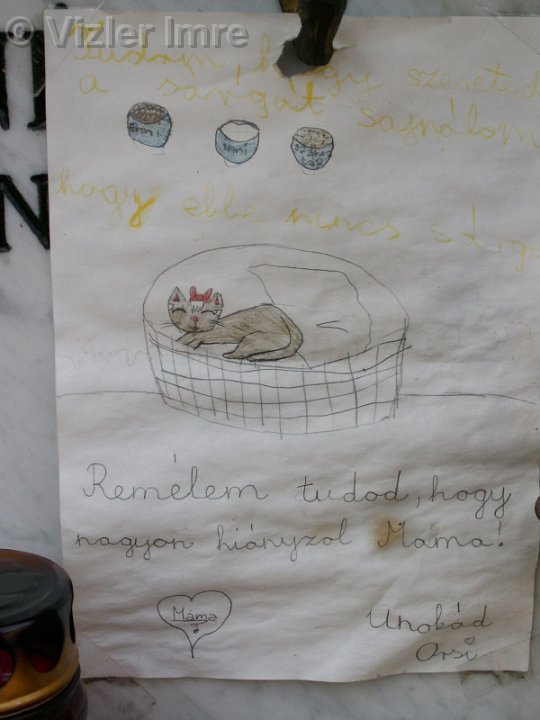 © Vizler Imre
Tudom, hogy szereted
a sárgát sajnálom
hogy ebbe nincs sárga
Remélem tudod, hogy
nagyon hiányzol Mama!
Máma
Unokád
Orsi